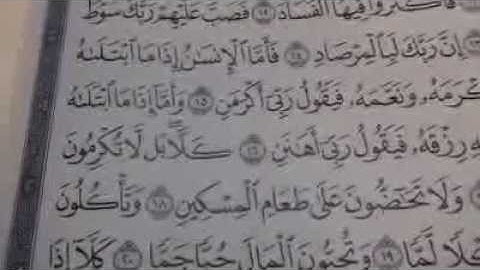 فَأَكْثَرُوا۟ فِيهَا ٱلْفَسَادَ ١٢ فَصَبَّ عَلَيْهِمْ رَبُّكَ سَوْطَ
إِنَّ رَبَّكَ لَبِٱلْمِرْصَادِ ١٤ فَأَمَّا ٱلْإِنسَـٰنُ إِذَا مَا ٱبْتَلَىٰهُ
وَنَعَّمَهُۥ فَيَقُولُ رَبِّىٓ أَكْرَمَنِ ١٥ وَأَمَّآ إِذَا مَا ٱبْتَلَىٰهُ
رِزْقَهُۥ فَيَقُولُ رَبِّىٓ أَهَـٰنَنِ ١٦ كَلَّا ۖ بَل لَّا تُكْرِمُونَ
وَلَا تَحَـٰٓضُّونَ عَلَىٰ طَعَامِ ٱلْمِسْكِينِ ١٨ وَتَأْكُلُونَ
لَّمًّا ١٩ وَتُحِبُّونَ ٱلْمَالَ حُبًّا جَمًّا ٢٠ كَلَّآ إِذَا